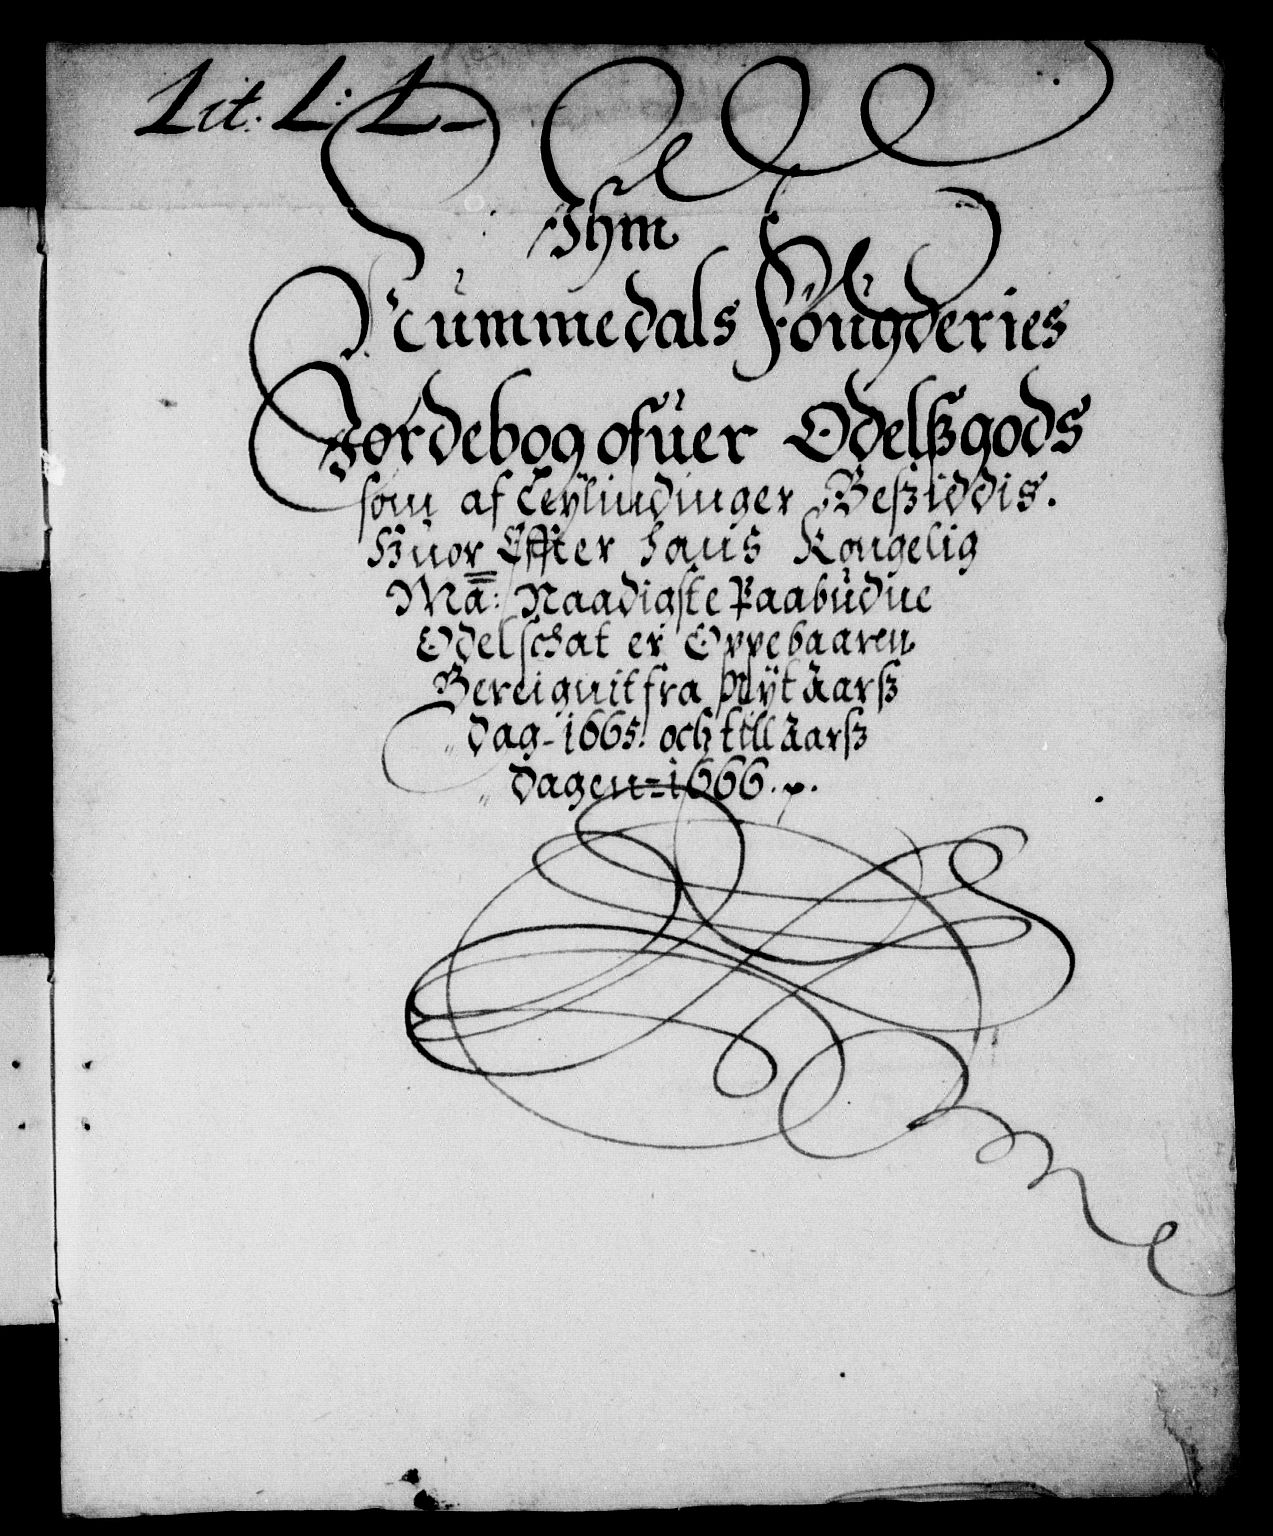 Lit: L: L-
Ihm
Nummedals Fougderies
Jordebog ofuer Odelsgods
som af Leylindinger Besiddis.
Huor Effter hans Kongelig
Ma: Naadigste Paabudne
Odelschat er Oppebaaren
Bereignit fra Nÿt Aarß
dag- 1665. och till Aarß
dagen=1666. p.